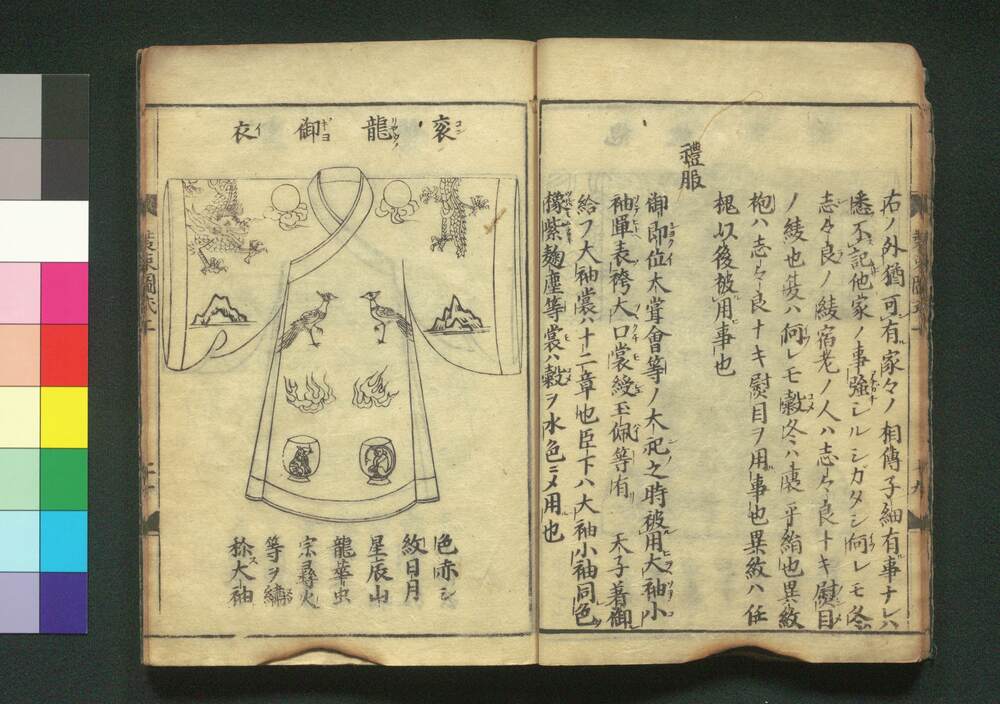 右ノ外猶可有家々ノ相傳子細有事ナレハ
悉不記他家ノ事強シルシガタシ何レモ冬
志々良ノ綾宿老ノ人ハ志々良ナキ熨目
ノ綾也夏ハ何レモ縠冬ハ裏平絹也異紋
袍ハ志々良ナキ熨目ヲ用事也異紋ハ任
槐以後被用事也
禮服
御即位大甞會等ノ大祀之時被用大袖小
袖單表袴大口裳綬玉佩等有 天子着御
給フ大袖裳ハ十二章也臣下ハ大袖小袖同色
橡紫麹塵等裳ハ縠ヲ水色ニメ用也
袞龍御衣
色赤シ
紋日月
星辰山
龍華虫
宗彜火
等ヲ繍
於大袖